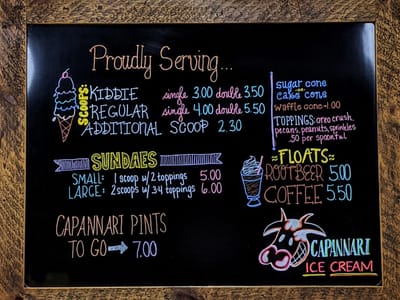 Proudly Serving...
SCOOPS:
KIDDIE single 3.00 double 3.50
REGULAR single 4.00 double 5.50
ADDITIONAL SCOOP 2.30
sugar cone
or
cake cone
waffle cone +1.00
TOPPINGS: oreo crush,
pecans, peanuts, sprinkles
.50 per spoonful
SUNDAES
SMALL: 1 scoop w/ 2 toppings 5.00
LARGE: 2 scoops w/ 3-4 toppings 6.00
≈FLOATS≈
ROOTBEER 5.00
COFFEE 5.50
CAPANNARI PINTS
TO GO → 7.00
CAPANNARI
ICE CREAM